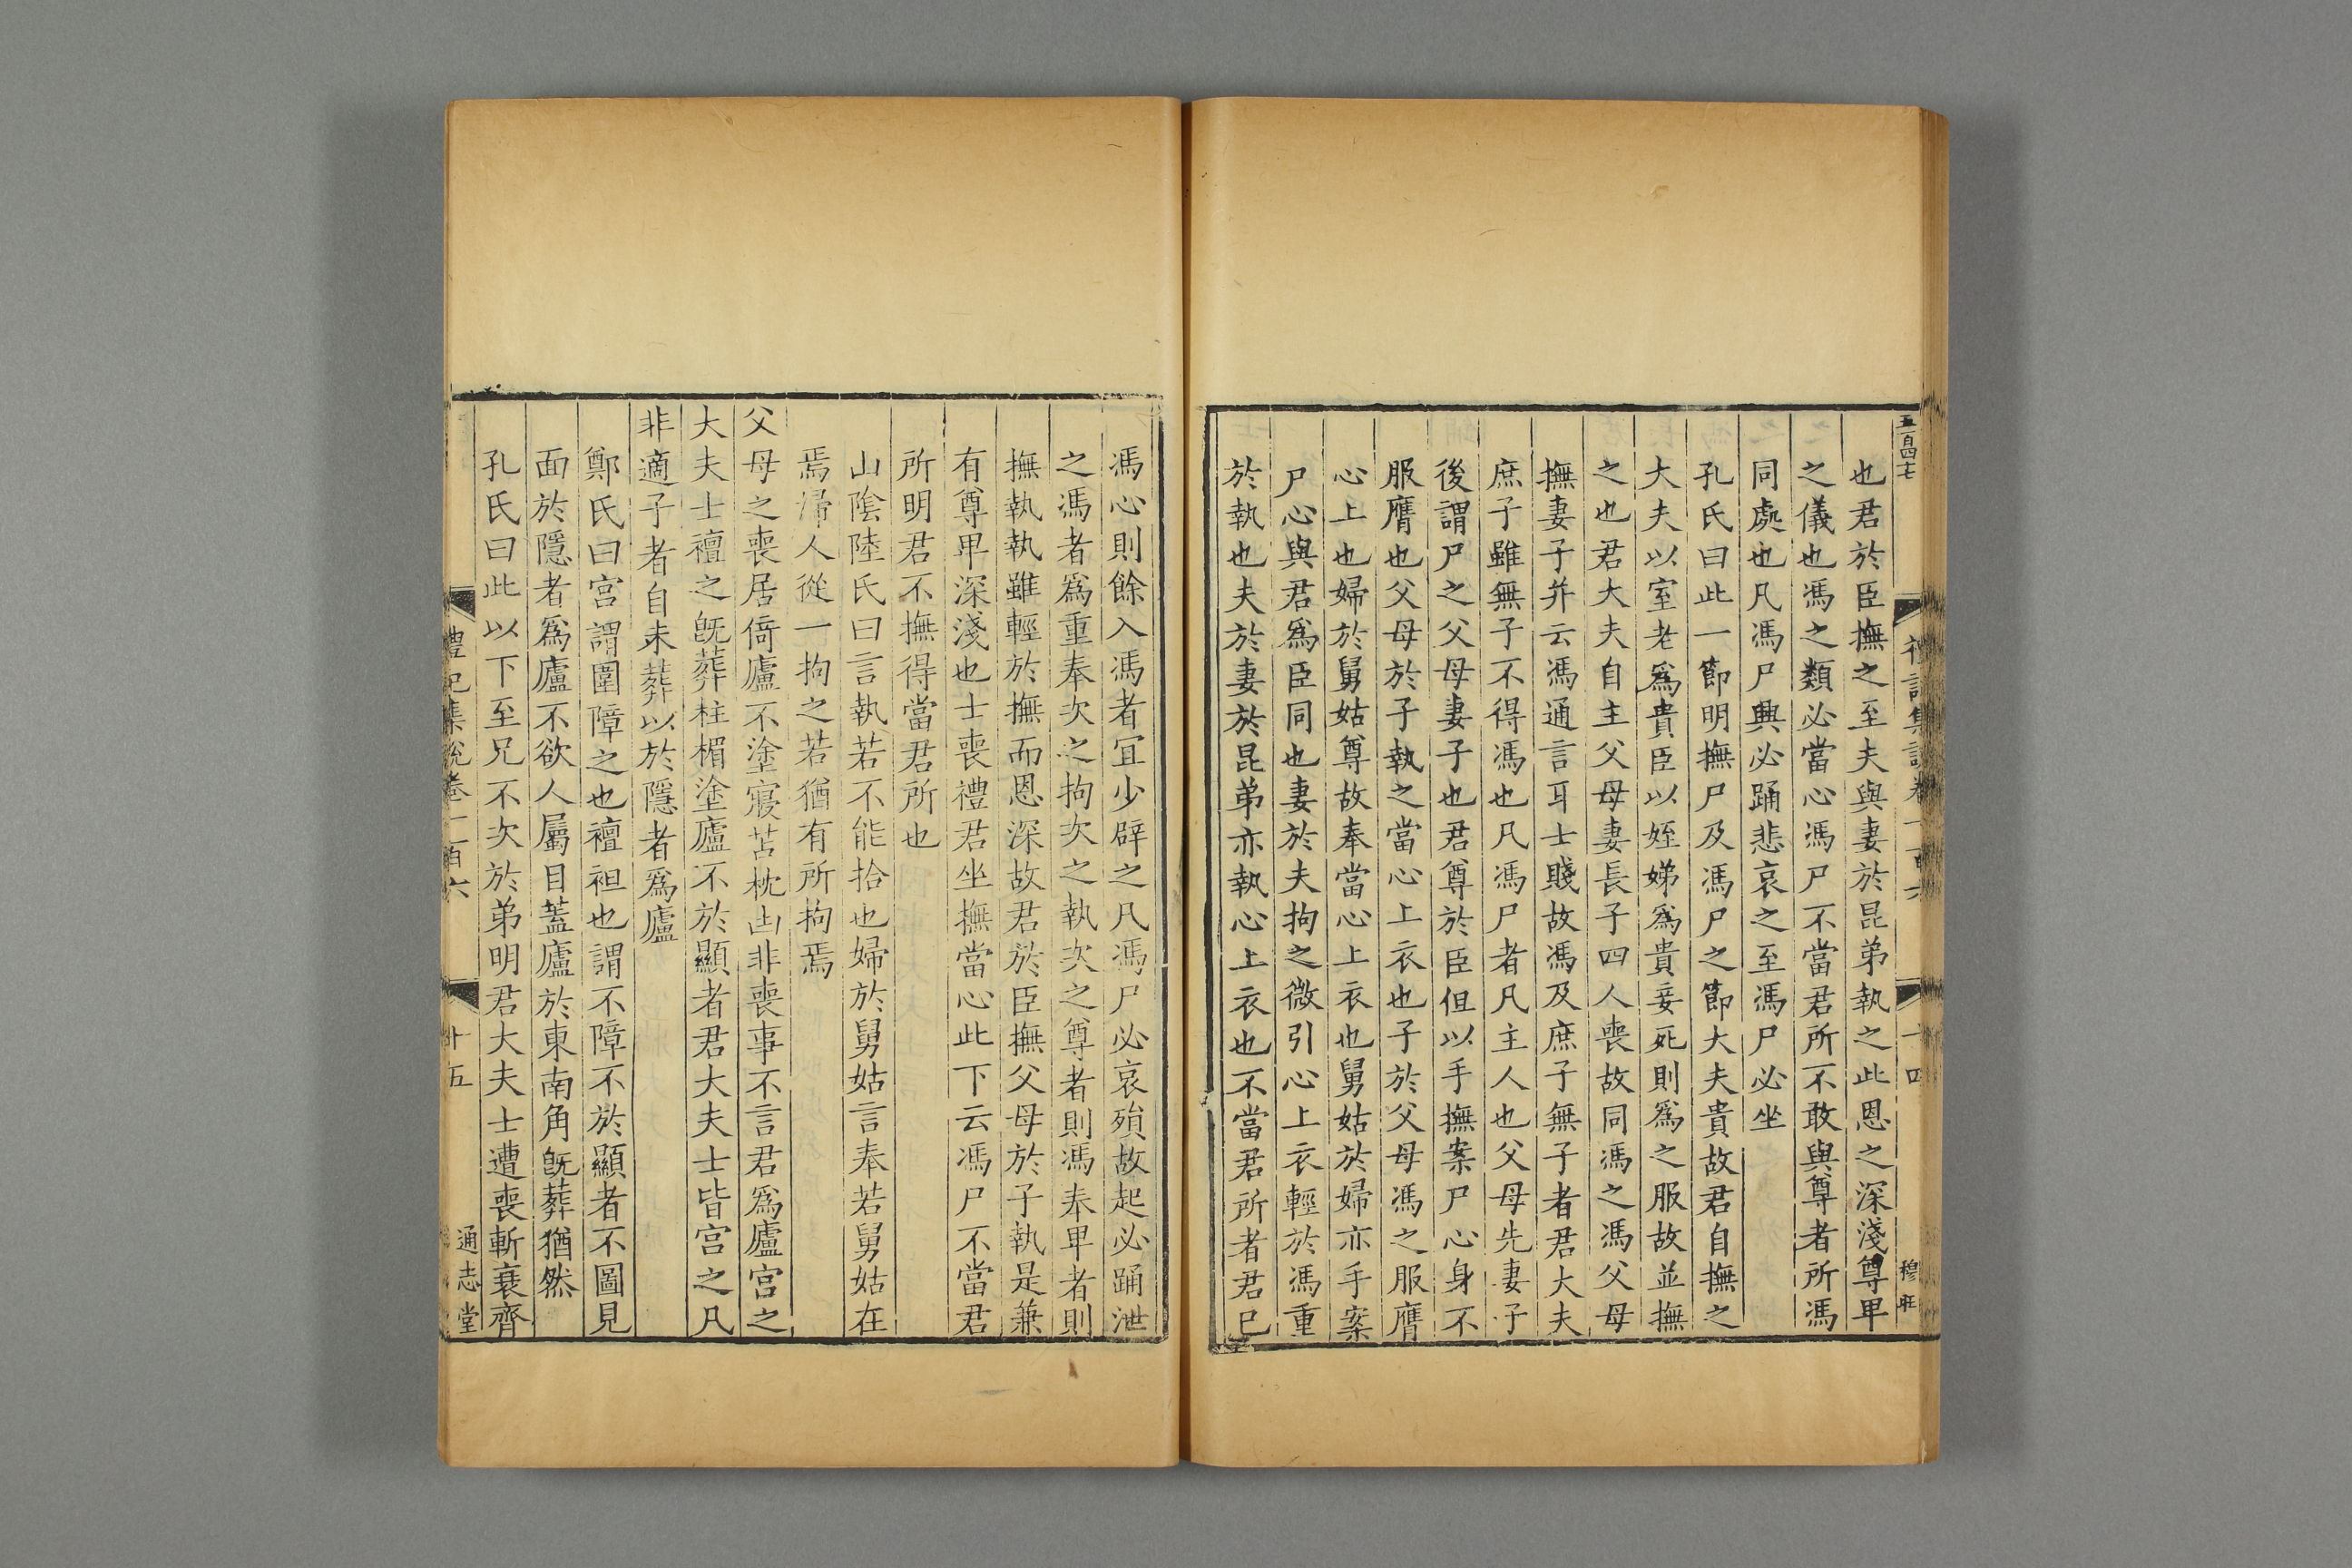 也君於臣撫之至夫與妻於昆弟執之此恩之深淺尊卑
之儀也馮之類必當心馮尸不當君所不敢與尊者所馮
同處也凡馮尸興必踊悲哀之至馮尸必坐
孔氏曰此一節明撫尸及馮尸之節大夫貴故君自撫之
大夫以室老爲貴臣以姪娣爲貴妾死則爲之服故並撫
之也君大夫自主父母妻長子四人喪故同馮之馮父母
撫妻子并云馮通言耳士賤故馮及庶子無子者君大夫
庶子雖無子不得馮也凡馮尸者凡主人也父母先妻子
後謂尸之父母妻子也君尊於臣但以手撫案尸心身不
服膺也父母於子執之當心上衣也子於父母馮之服膺
心上也婦於舅姑尊故奉當心上衣也舅姑於婦亦手案
尸心與君爲臣同也妻於夫拘之微引心上衣輕於馮重
於執也夫於妻於昆弟亦執心上衣也不當君所者君已
馮心則餘入馮者宜少辟之凡馮尸必哀殞故起必踊泄
之馮者爲重奉次之拘次之執次之尊者則馮奉卑者則
撫執執雖輕於撫而恩深故君於臣撫父母於子執是兼
有尊卑深淺也士喪禮君坐撫當心此下云馮尸不當君
所明君不撫得當君所也
山陰陸氏曰言執若不能拾也婦於舅姑言奉若舅姑在
焉婦人從一拘之若猶有所拘焉
父母之喪居倚廬不塗寢苫枕凷非喪事不言君爲廬宮之
大夫士襢之旣葬柱楣塗廬不於顯者君大夫士皆宮之凡
非適子者自未葬以於隱者爲廬
鄭氏曰宮謂圍障之也襢袒也謂不障不於顯者不圖見
面於隱者爲廬不欲人屬目蓋廬於東南角旣葬猶然
孔氏曰此以下至兄不次於弟明君大夫士遭喪斬衰齊
禮記集說卷一百六
十五
通志堂